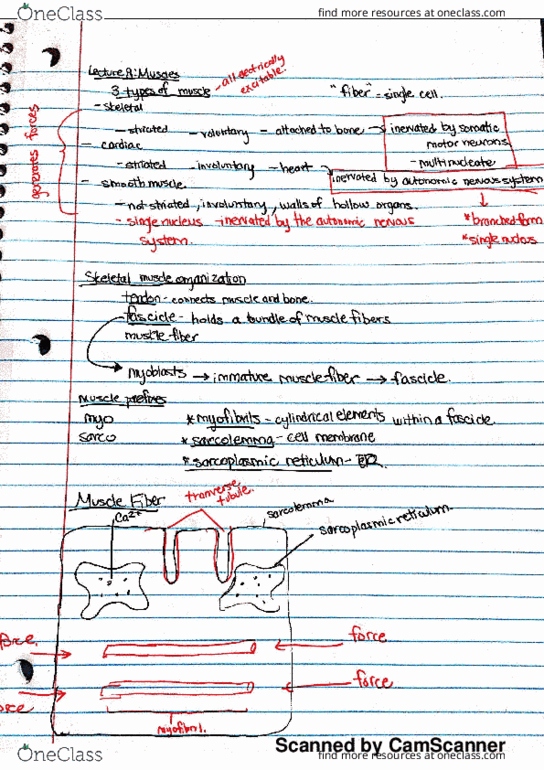 OneClass
find more resources at oneclass.com
Lecture 8: Muscles
3 types of muscle - all electrically excitable.
"fiber" - single cell.
generates forces
- skeletal
- striated - voluntary - attached to bone → inervated by somatic motor neurons
- multinucleate
- cardiac
- striated - involuntary - heart → inervated by autonomic nervous system
* branched form
* single nucleus
- smooth muscle.
- not striated, involuntary, walls of hollow organs.
- single nucleus - inervated by the autonomic nervous system.
Skeletal muscle organization
tendon - connects muscle and bone.
- fascicle - holds a bundle of muscle fibers
muscle fiber
myoblasts → immature muscle fiber → fascicle.
Muscle prefixes
myo
sarco
* myofibrils - cylindrical elements within a fascicle.
* sarcolemma - cell membrane
* sarcoplasmic reticulum - ER
Muscle Fiber
tranverse tubule.
Ca2+
sarcolemma
sarcoplasmic reticulum.
force.
force
force
force
myofibril.
Scanned by CamScanner
OneClass
find more resources at oneclass.com